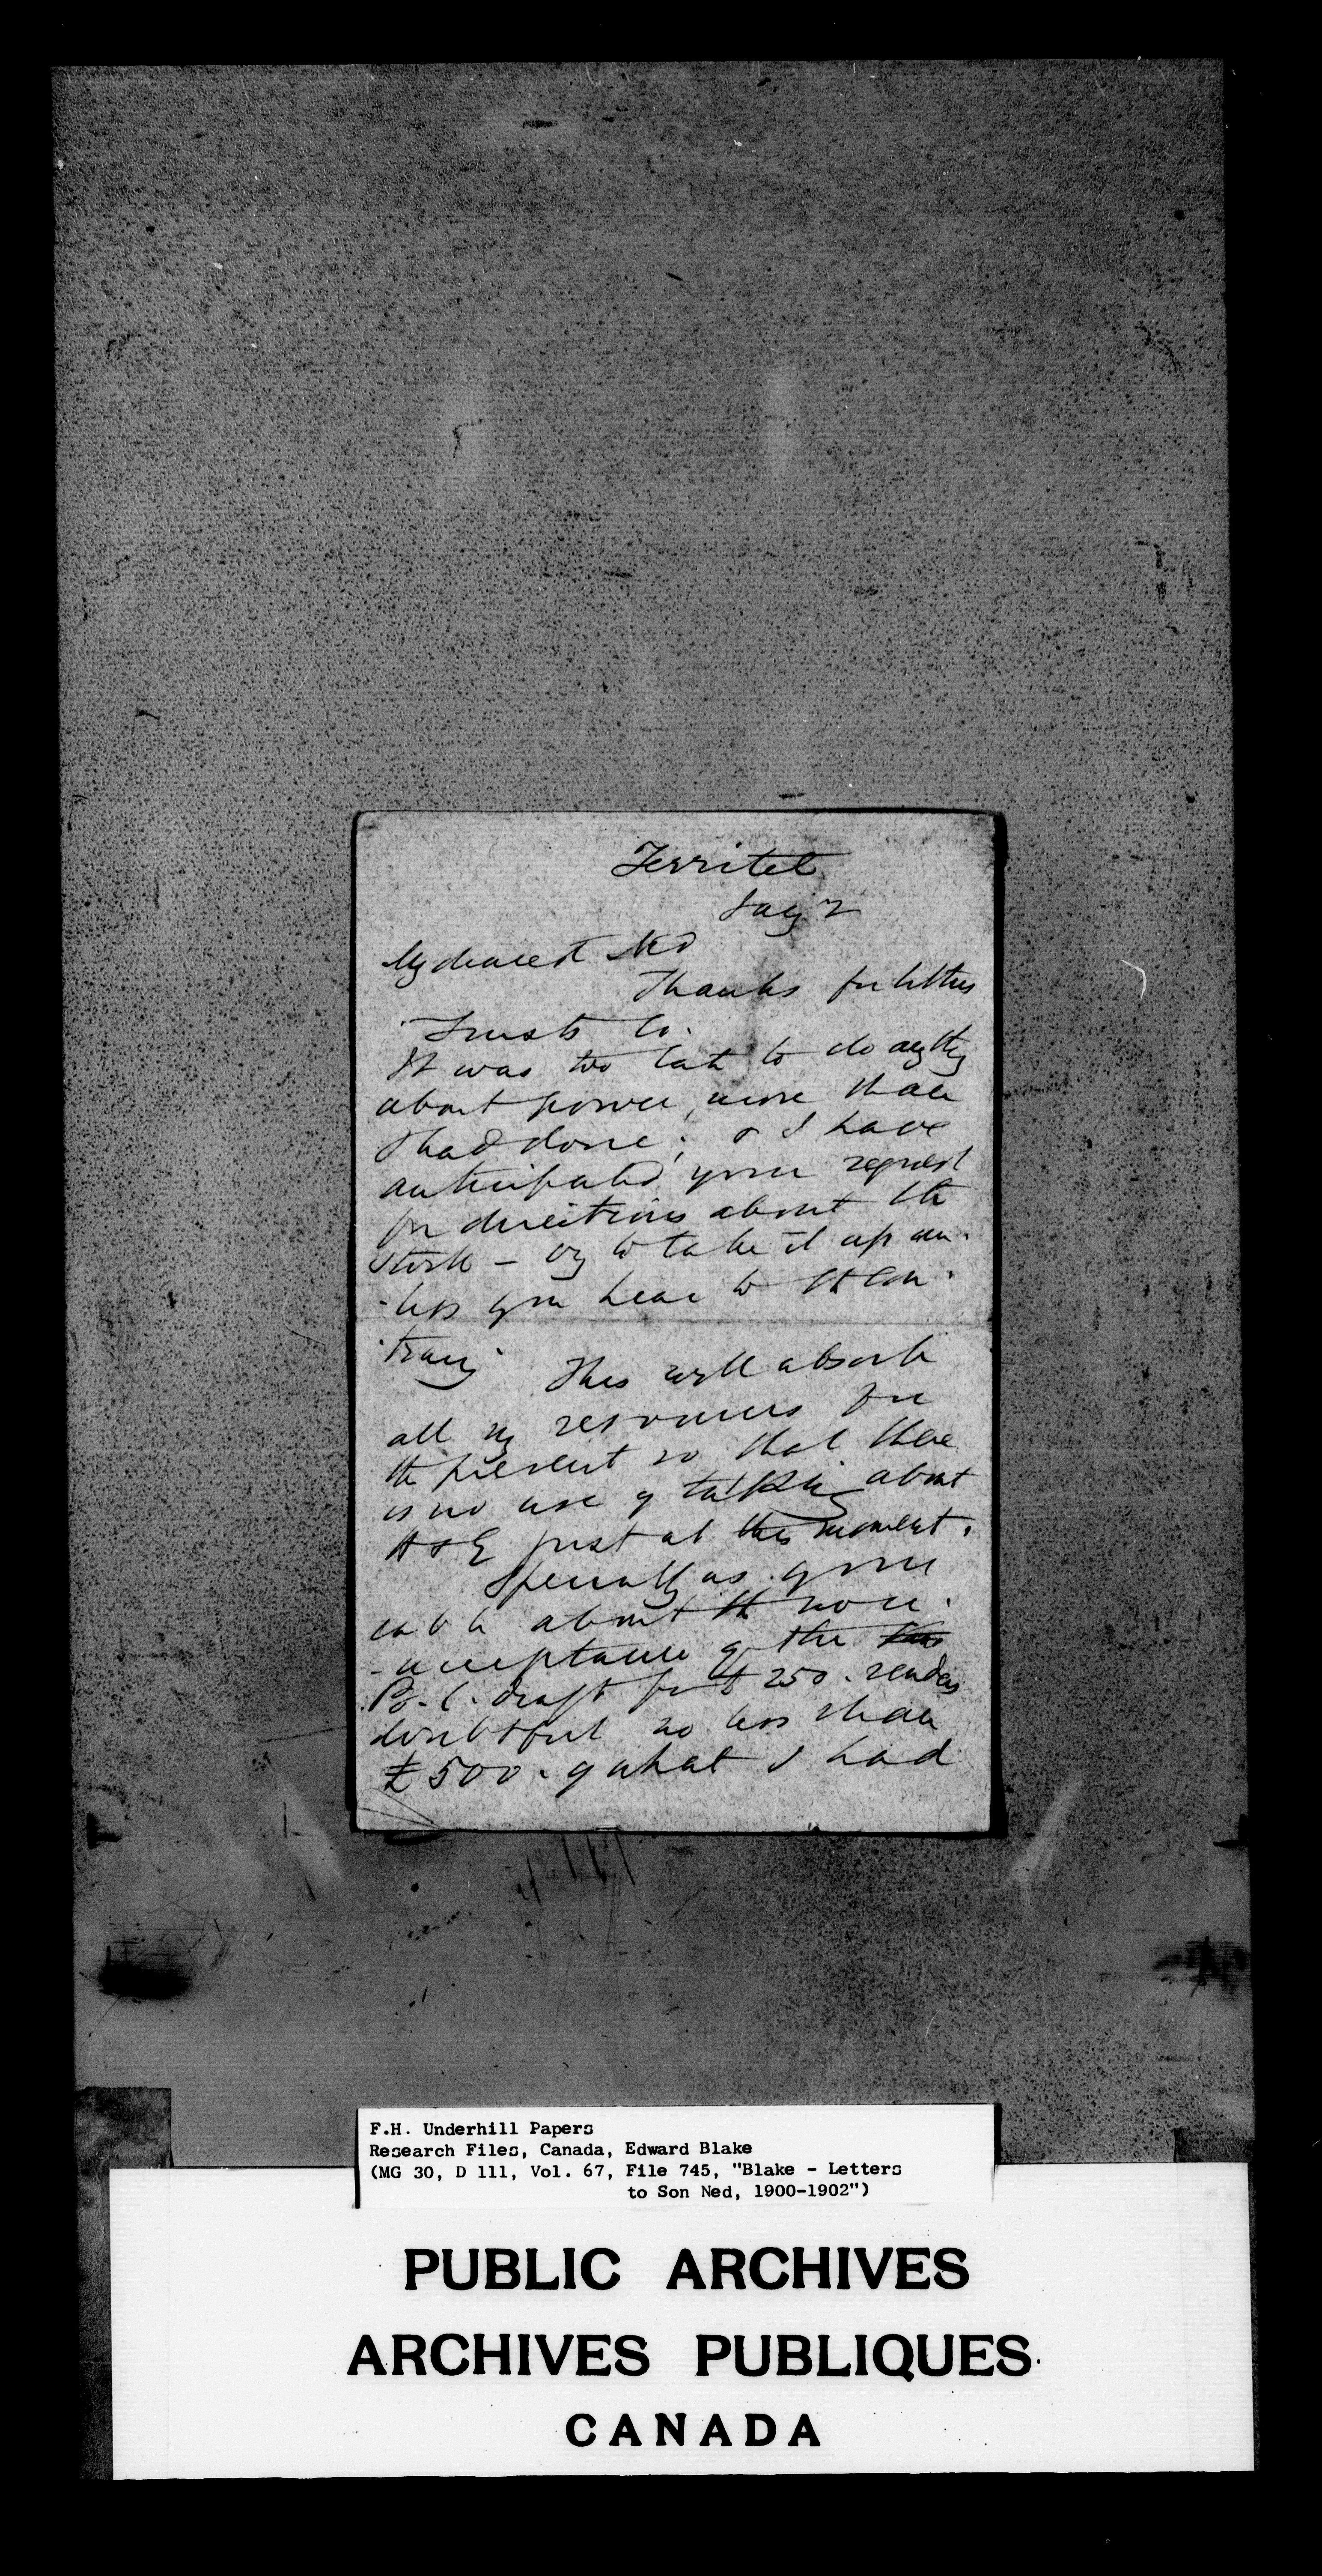 Territet
Jany 2
My dearest Ned
Thanks for letters
Trusts Co.
It was too late to do anything
about power, more than
I had done; & I have
anticipated your request
for directions about the
stock — viz to take it up un-
-less you hear to the con-
-trary This will absorb
all my resources for
the present so that there
is no use of talking about
H & E just at this moment.
Specially as your
cable about the non-
-acceptance of the
P. C. draft for £250. renders
doubtful no less than
£500. of what I had
F.H. Underhill Papers
Research Files, Canada, Edward Blake
(MG 30, D 111, Vol. 67, File 745, "Blake - Letters
to Son Ned, 1900-1902")
PUBLIC ARCHIVES
ARCHIVES PUBLIQUES
CANADA